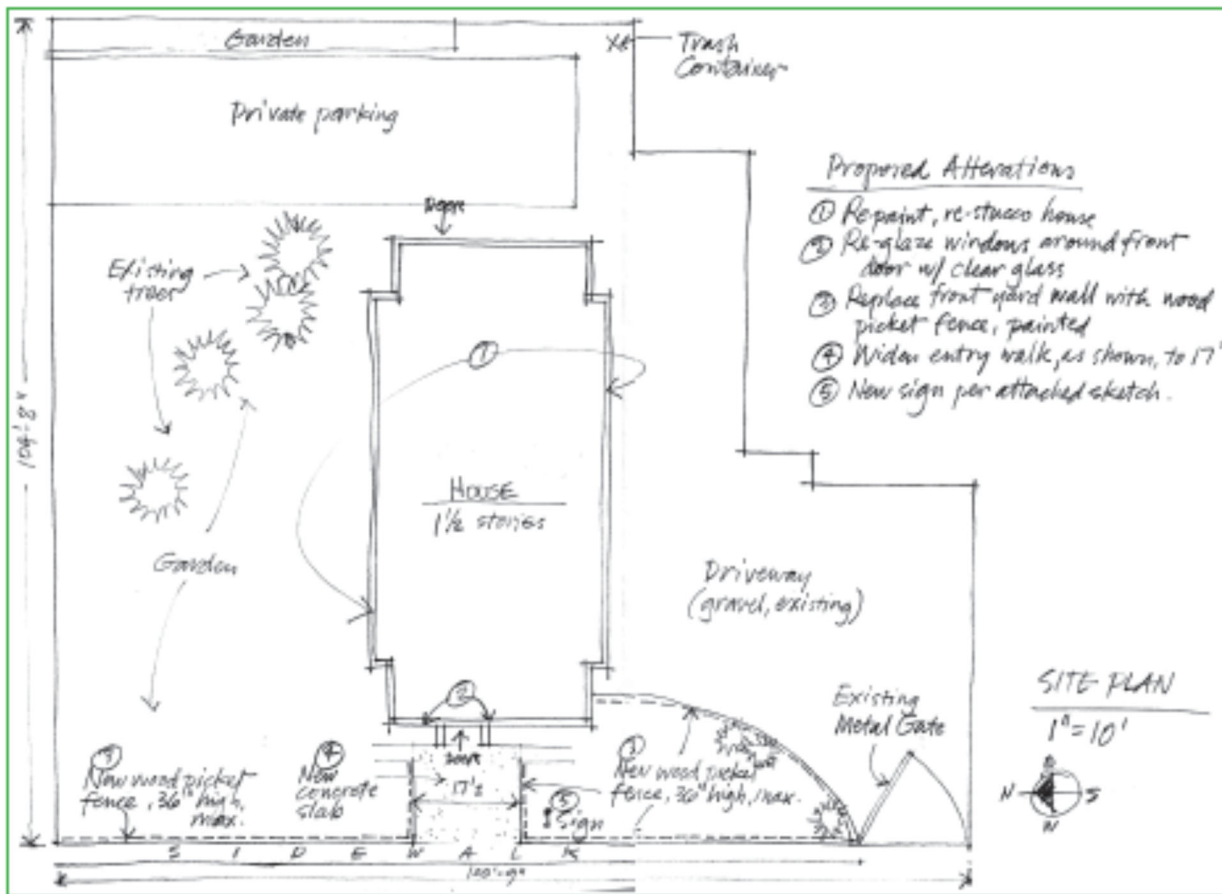 Garden
Trash
Container
Private parking
Proposed Alterations
① Repaint, re-stucco house
② Re-glaze windows around front
door w/ clear glass
③ Replace front yard wall with wood
picket fence, painted
④ Widen entry walk, as shown, to 17'
⑤ New sign per attached sketch.
Door
Existing
trees
①
104'-8"
HOUSE
1 1/2 stories
Garden
Driveway
(gravel, existing)
SITE PLAN
1" = 10'
Existing
Metal Gate
②
③
New wood picket
fence, 36" high,
max.
④
New
concrete
slab
Door
③
New wood picket
fence, 36" high, max.
⑤
Sign
N
S
W
SIDEWALK